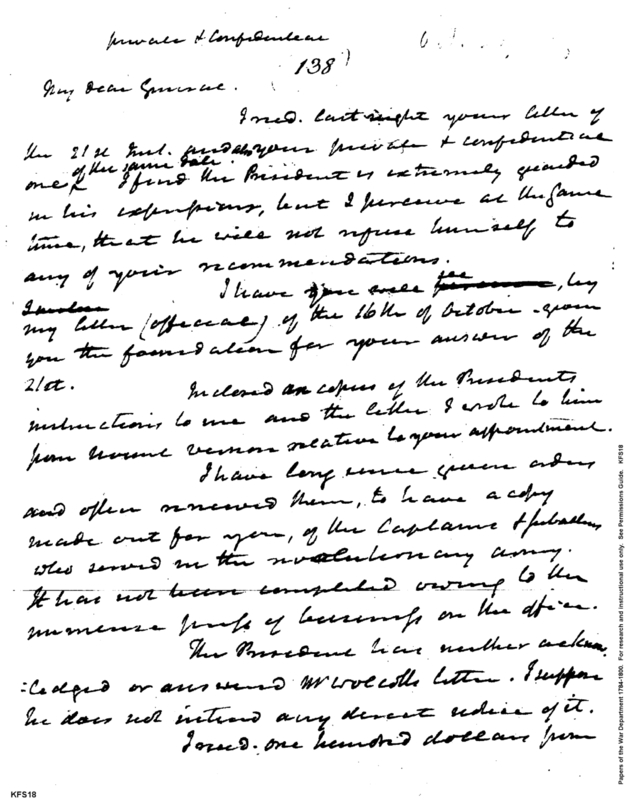 private & Confidential
138
My dear General.
I recd. last night your letter of
the 21st Inst. and also your private & confidential
of the same date.
one. I find the President is extremely guarded
in his expressions, but I perceive at the same
time, that he will not refuse himself to
any of your recommendations.
I have you will see, by
my letter (official) of the 16th of October given
you the foundation for your answer of the
21st.
Inclosed are copies of the Presidents
instructions to me and the letter I wrote to him
from Mount Vernon relative to your appointment.
I have long since given orders
and often renewed them, to have a copy
made out for you, of the Captains & subalterns
who served in the revolutionary army.
It has not been completed owing to the
immense press of business on the office.
The President has neither acknow
=ledged or answered Mr Wolcotts letter. I suppose
he does not intend any direct notice of it.
I recd. one hundred dollars from
KFS18
Papers of the War Department 1784-1800. For research and instructional use only. See Permissions Guide. KFS18